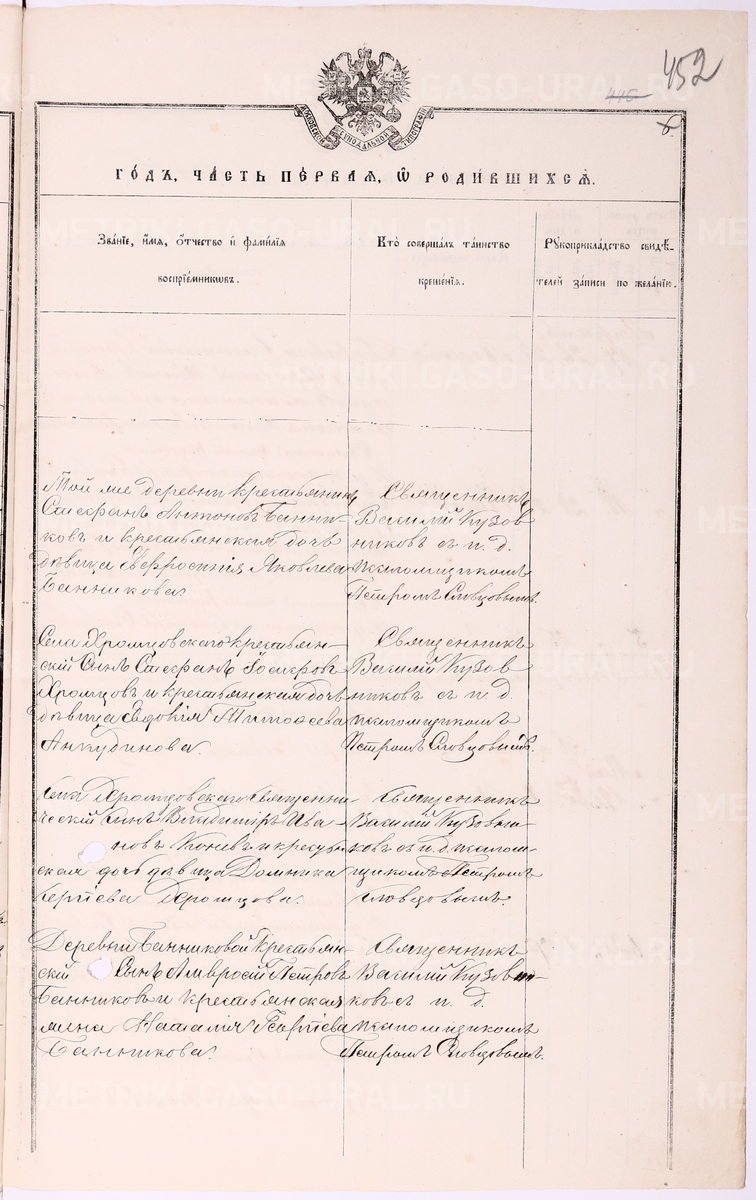 452
445
МОСКОВСКОЙ СѴНОДАЛЬНОЙ ТИПОГРАФІИ
6
ГО́ДЪ, ЧА́СТЬ ПЕ́РВАЯ, Ѡ҆ РОДИ́ВШИХСЯ.
Зва́нїе, и҆́мѧ, ѻ҆́тчество и҆ фами́лїѧ
воспрїе́мникωвъ.
Кто̀ соверша́лъ та́инство
креще́нїѧ.
Рꙋкоприкла́дство свидѣ́-
телей за́писи по жела́нїю.
Той же деревни крестьянинъ
Стефанъ Антоновъ Банни-
ковъ и крестьянская дочь
дѣвица Евфросинія Яковлева
Банникова.
Священникъ
Василій Кузов
никовъ съ и. д.
псаломщикомъ
Петромъ Словцовымъ.
Села Хромцовскаго крестьян-
скій сынъ Стефанъ Іосифовъ
Хромцовъ и крестьянская дочь
дѣвица Евдокія Тимофеева
Анкудинова.
Священникъ
Василій Кузов
никовъ съ и. д.
псаломщикомъ
Петромъ Словцовымъ.
Села Хромцовскаго священни-
ческій сынъ Владиміръ Ива-
новъ и крестьян
ская дочь дѣвица Домника
Сергіева Хромцова.
Священникъ
Василій Кузовни
ковъ съ и. д. псалом-
щикомъ Петромъ
Словцовымъ.
Деревни Банниковой крестьян-
скій сынъ Амвросій Петровъ
Банниковъ и крестьянская
жена Наталія Георгіева
Банникова.
Священникъ
Василій Кузовни-
ковъ съ и. д.
псаломщикомъ
Петромъ Словцовымъ.
METRIKI.GASO-URAL.RU